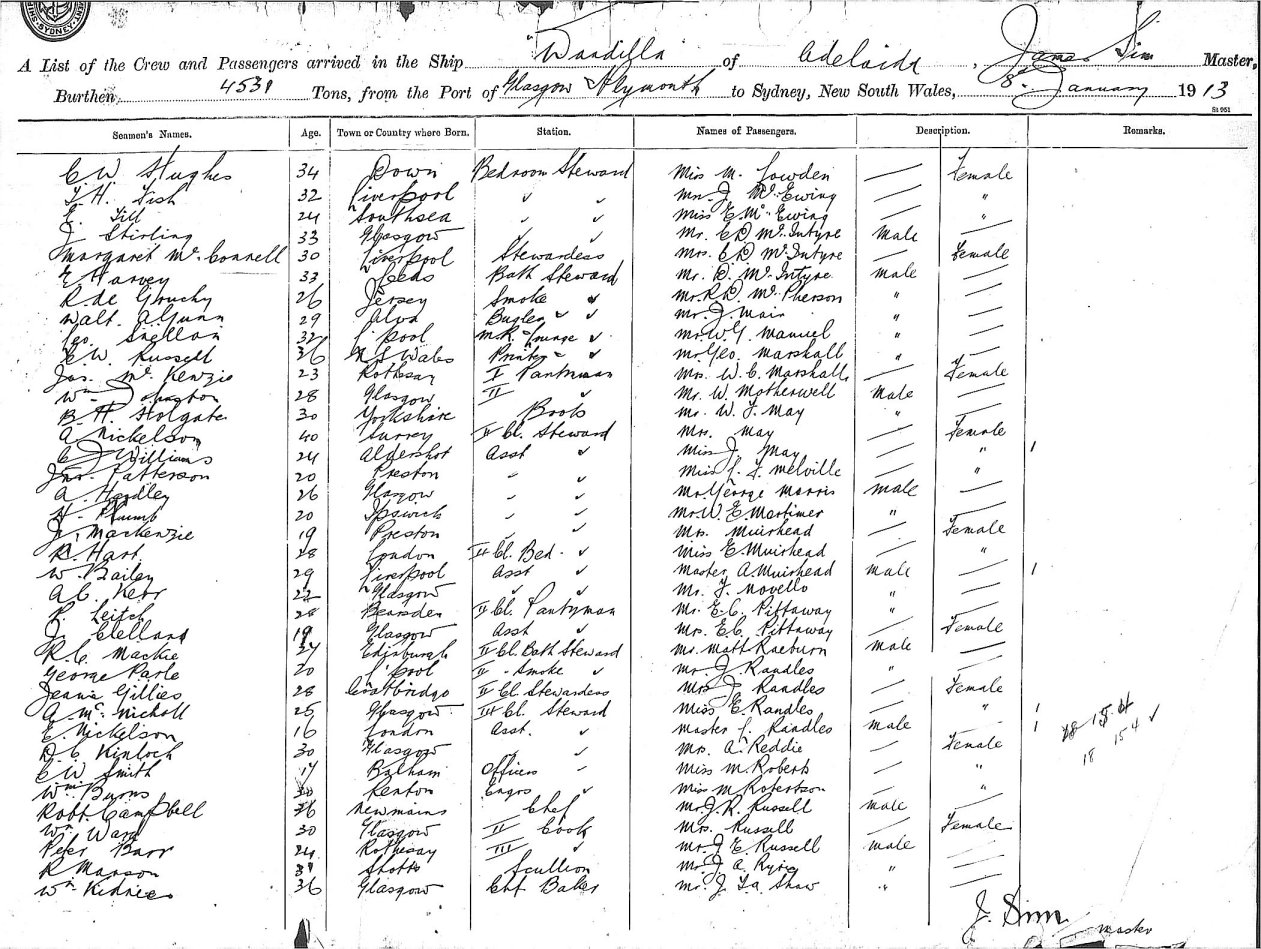 SYDNEY
A List of the Crew and Passengers arrived in the Ship "Wandilla" of Adelaide, James Sim Master,
Burthen 4531 Tons, from the Port of Glasgow Plymouth to Sydney, New South Wales, 8th January 1913
St 951
Seamen's Names. Age. Town or Country where Born. Station. Names of Passengers. Description. Remarks.
C W Hughes 34 Down Bedroom Steward Miss M. Lowden — Female
T. H. Fish 32 Liverpool " " Mrs J McEwing — "
E. Till 24 Southsea " " Miss E McEwing — "
J Stirling 33 Glasgow " " Mr. C D McIntyre Male —
Margaret McConnell 30 Liverpool Stewardess Mrs. C D McIntyre — Female
E Harvey 33 Leeds Bath Steward Mr. D. McIntyre Male —
R de Gruchy 26 Jersey Smoke " Mr R D. McPherson " —
Walt. A Gunn 29 Alva Bugler " " Mr. J. Mair " —
Geo. Snellan 32 L'pool " Mr W G. Manuel " —
C W. Russell 36 N S Wales Printer " " Mr Geo. Marshall " —
Jas. McKenzie 23 Rothesay I Pantryman Mrs. W. C. Marshall — Female
Wm Johnston 28 Glasgow II " Mr. W. Motherwell Male —
B. H. Holgate 30 Yorkshire Boots Mr. W. J. May " —
A Nickelson 40 Surrey II Cl. Steward Mrs. May — Female
C J Williams 24 Aldershot Asst " Miss J May — " 1
Jno. Patterson 20 Preston " " Miss J. Melville — "
A. Hardley 26 Glasgow " " Mr George Morris Male —
H. Plumb 20 Ipswich " " Mr W. E. Mortimer " —
J. Mackenzie 19 Preston " " Mrs. Muirhead — Female
R. Hart 28 London II Cl. Bed. " Miss E Muirhead — "
W. Bailey 29 Liverpool Asst " Master A. Muirhead Male — 1
A. C. Kerr 22 Glasgow " " Mr. J. Novello " —
R. Leitch 28 Bearsden II Cl. Pantryman Mr. E. C. Pittaway " —
J. Clelland 19 Glasgow Asst " Mrs. E C. Pittaway — Female
R. C. Mackie 27 Edinburgh II Cl. Bath Steward Mr. Matt Raeburn Male —
George Parle 20 L'pool II - Smoke " Mr J Randles " —
Jeanie Gillies 28 Coatbridge II Cl Stewardess Mrs J Randles — Female
A. McNicholl 25 Glasgow III Cl. Steward Miss E. Randles — " 1
E. Nickelson 16 London Asst. " Master J. Randles Male — 1 18 154
D. C. Kinloch 30 Glasgow " Mrs. A. Reddie — Female 18 154
C W Smith 17 Balham Officers " Miss M. Roberts — "
Wm Burns 30 Renton Engrs " Miss M. Robertson — "
Robt Campbell 36 Newmains Chef Mr J. R. Russell Male —
Wm Ward 30 Glasgow II Cook Mrs. Russell — Female
Peter Barr 24 Rothesay III " Mr J E Russell Male —
R Marson Shotts Scullion Mr J A. Ryrie " —
Wm Kidnies 36 Glasgow Chf Baker Mr. J. Shaw " —
J. Sim
Master